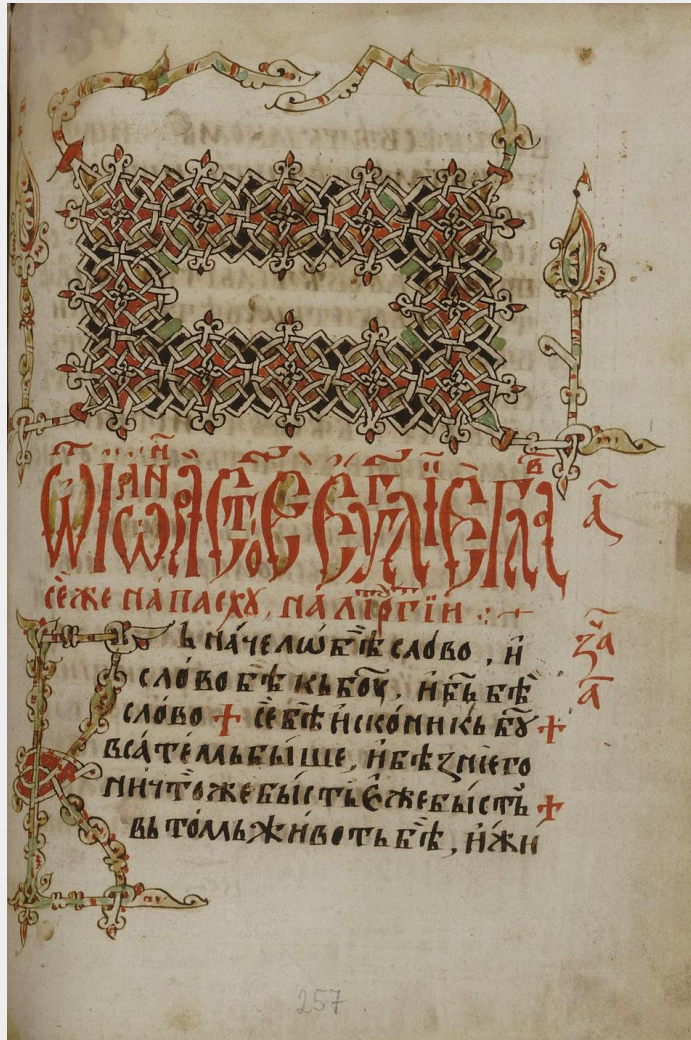 ѿ іѡанна ст҃ое еѵ҃лїе гла҃в а҃
се́же на па́сху, на лїтꙋргїи :·
Вь на́челѡ бѣ̀ сло́во , и҆
сло́во бѣ̀ кь бо҃у , и҆ б҃ь бѣ̀
сло́во + се̏ бѣ̀ и҆ско́ни кь б҃ꙋ +
вса̀ те́мь бы́ше , и҆ бѣз нѥго
ничто́же бы́сть є҆же бы́сть +
вь томь живѡть бѣ̀ , и҆ жи
а҃
за҃
а҃
257